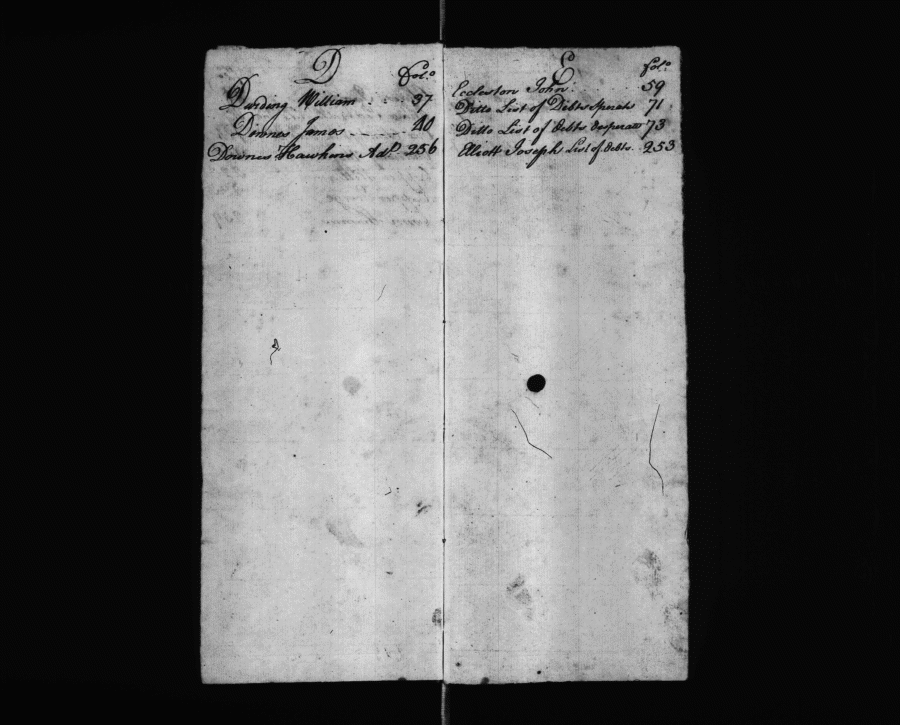 D
Fol.o
Darding William 37
Downes James 40
Downes Hawkins Ad.r 256
E
Fol.o
Eccleston John. 59
Ditto List of Debts Sperate 71
Ditto List of Debts Desperate 73
Elliott Joseph List of Debts. 253